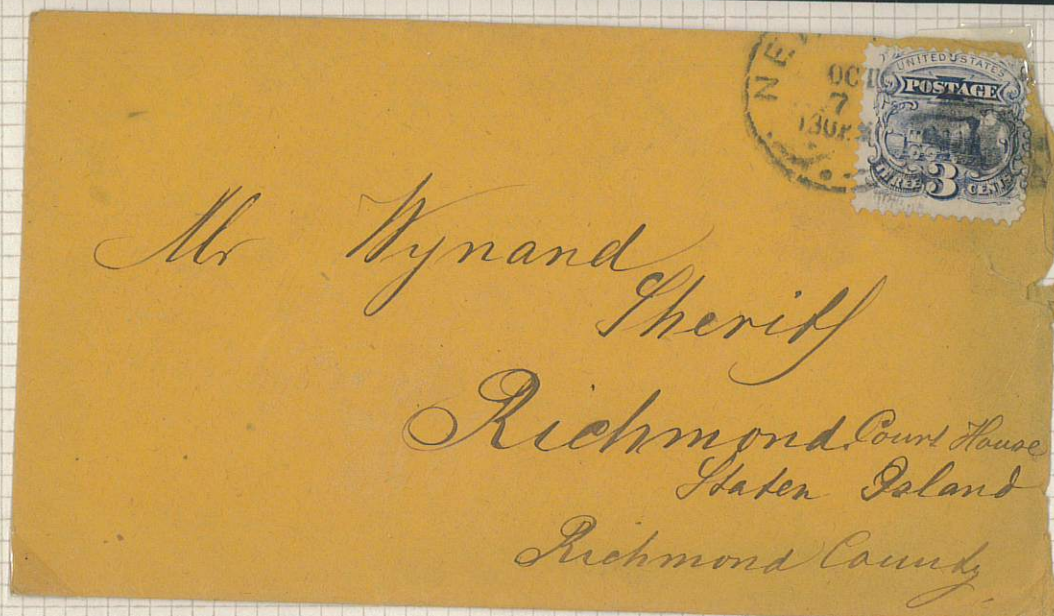 NE
OCT
7
130P.M
UNITED STATES
POSTAGE
THREE 3 CENTS
Mr Wynand
Sheriff
Richmond Court House
Staten Island
Richmond County